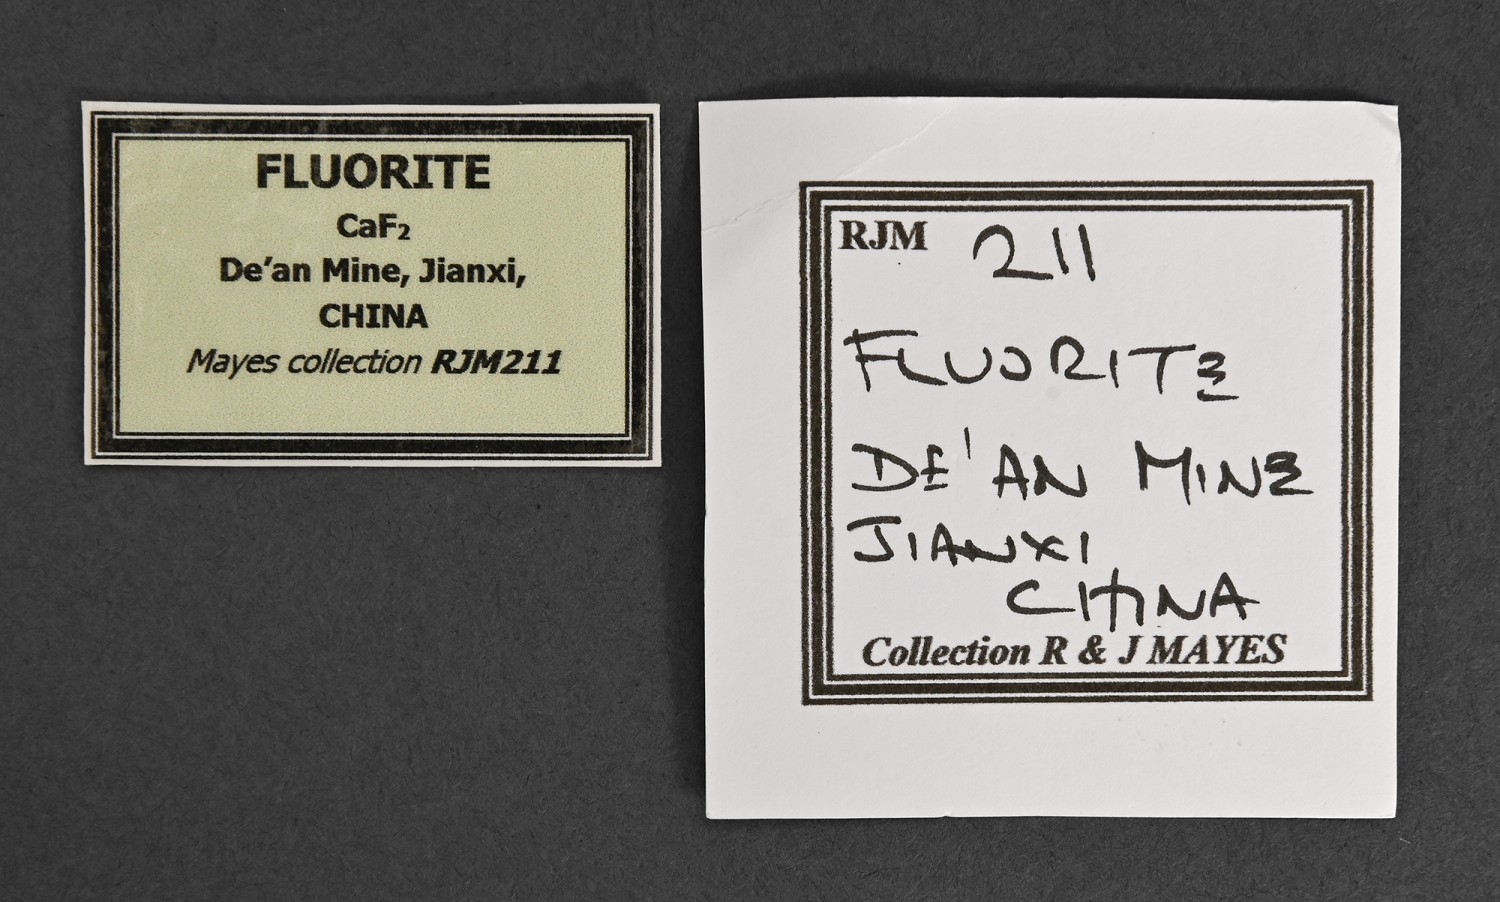 FLUORITE
CaF₂
De'an Mine, Jianxi,
CHINA
Mayes collection RJM211
RJM 211
FLUORITE
DE'AN MINE
JIANXI
CHINA
Collection R & J MAYES